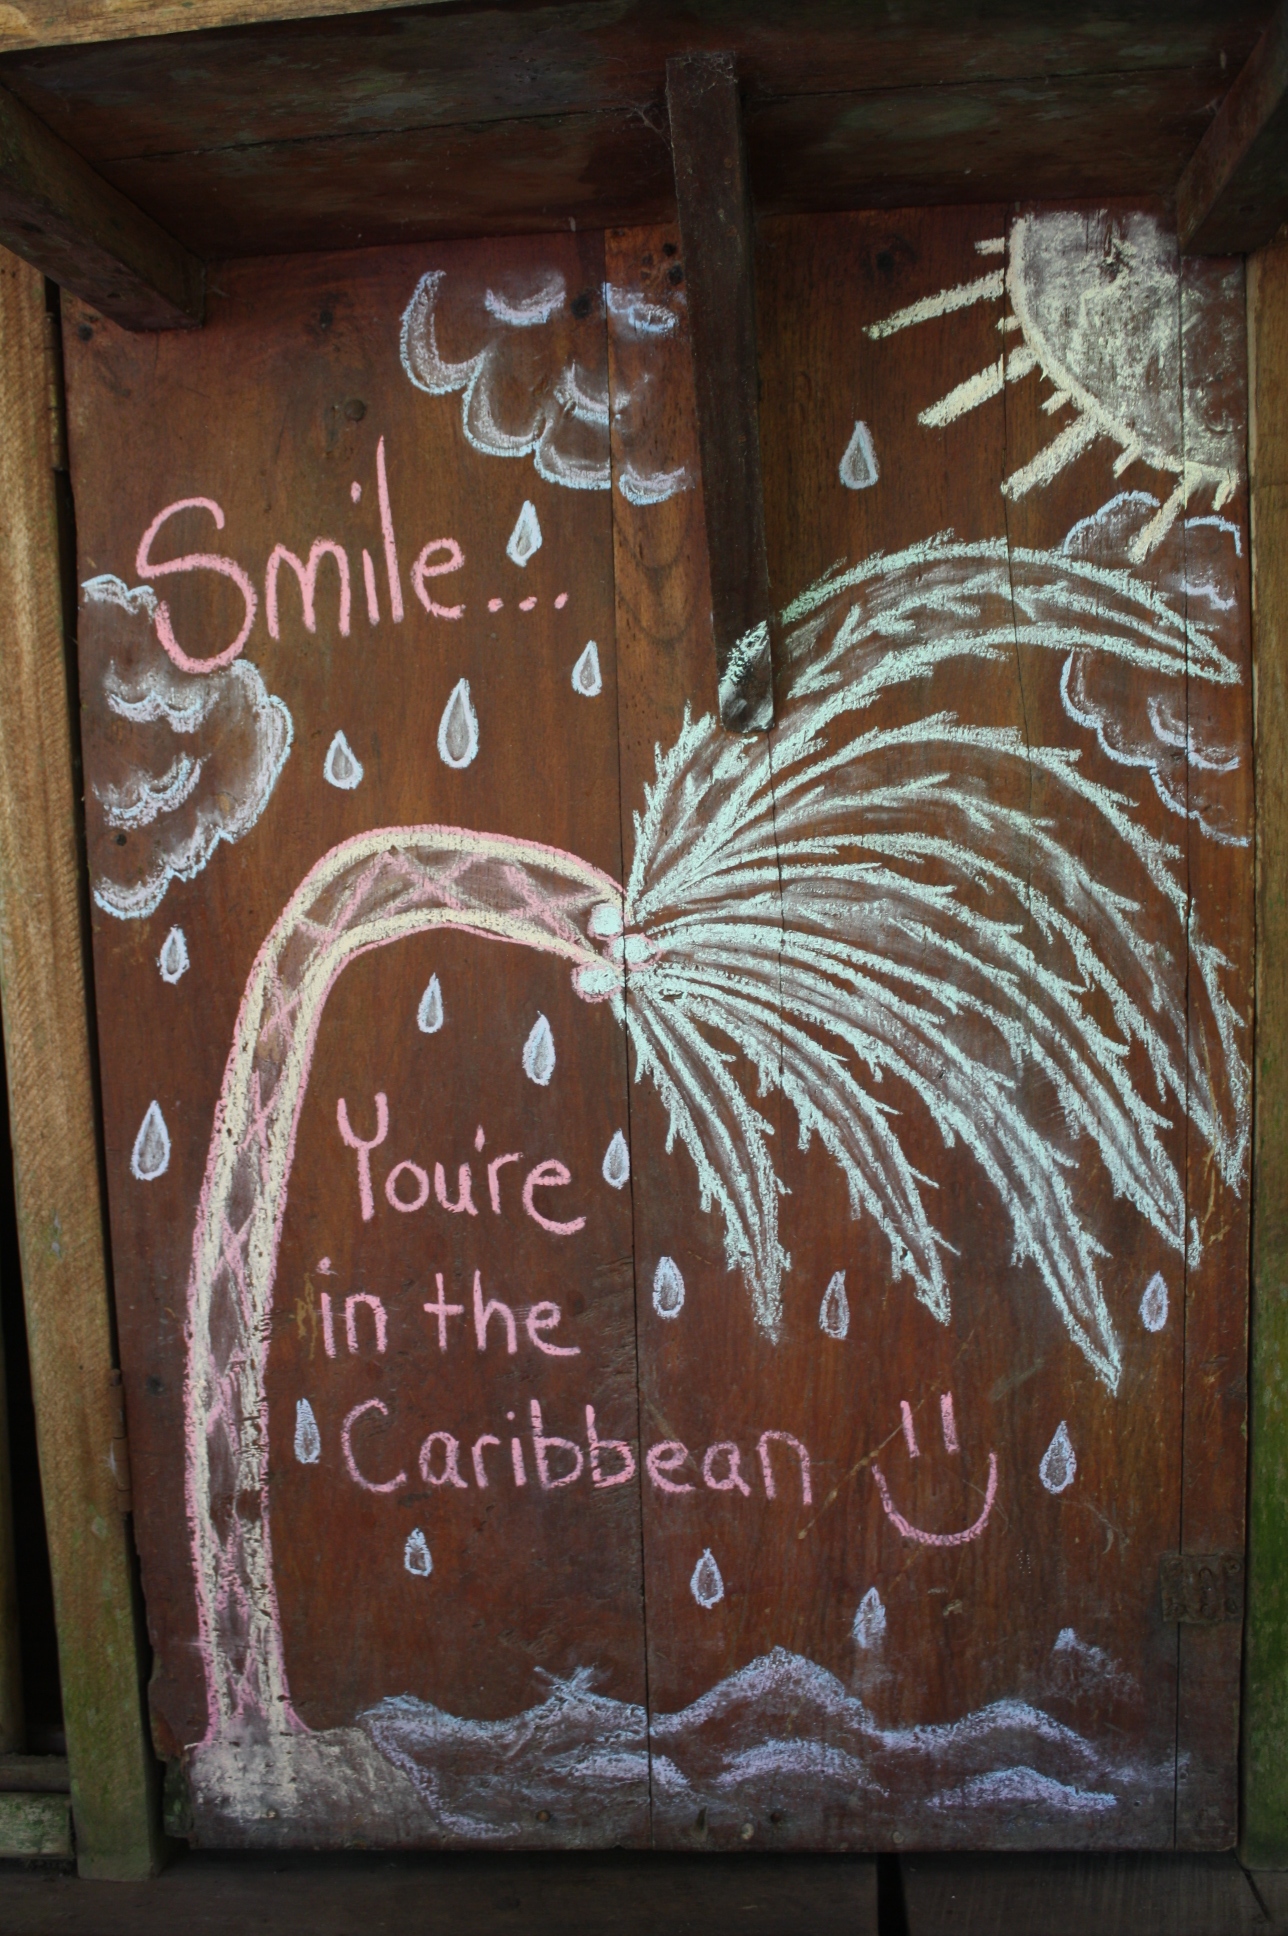 Smile...
You're
in the
Caribbean